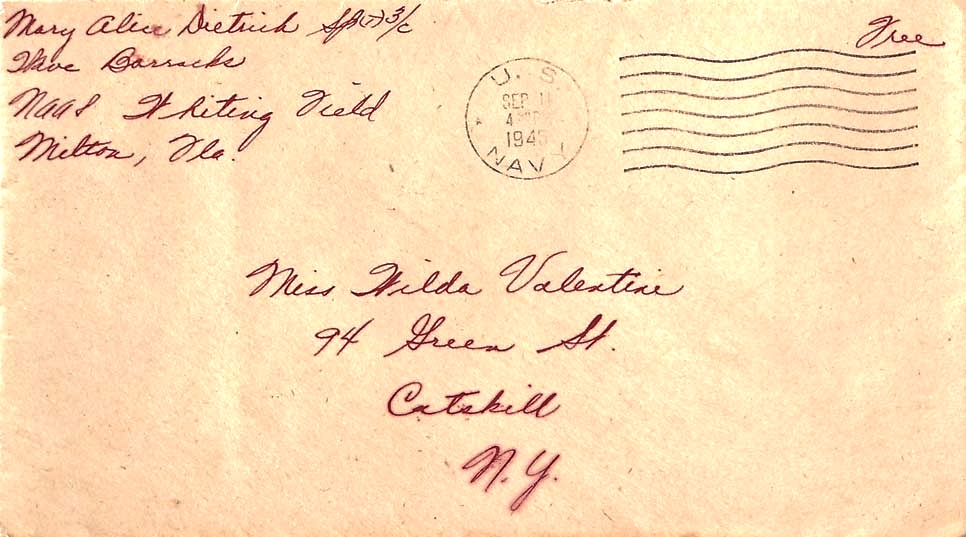 Mary Alice Dietrich Sp(T)3/c
Wave Barracks
NAAS Whiting Field
Milton, Fla.
Free
U. S.
SEP 11
4
1945
NAVY
Miss Wilda Valentine
94 Green St.
Catskill
N.Y.